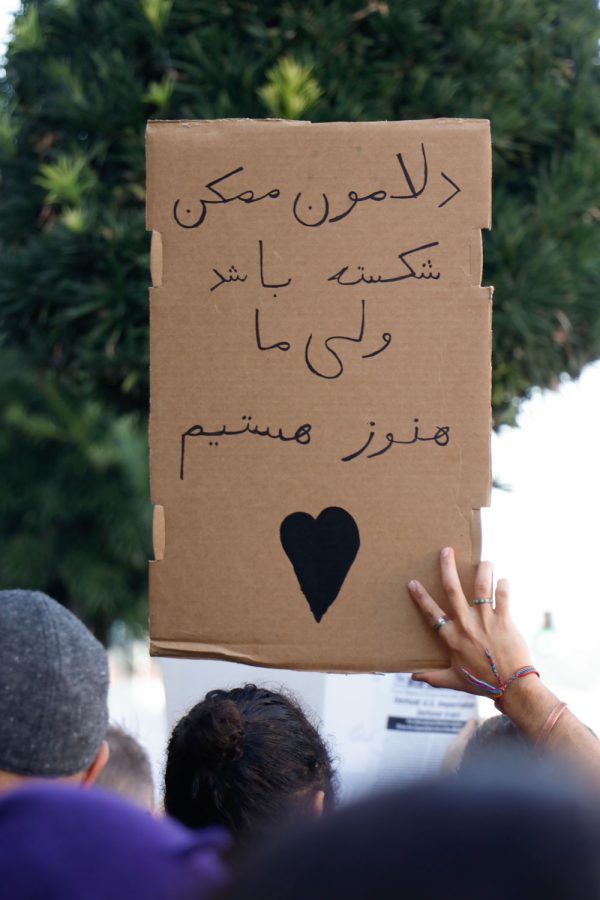 دلامون ممکن
شکسته باشد
ولی ما
هنوز هستیم